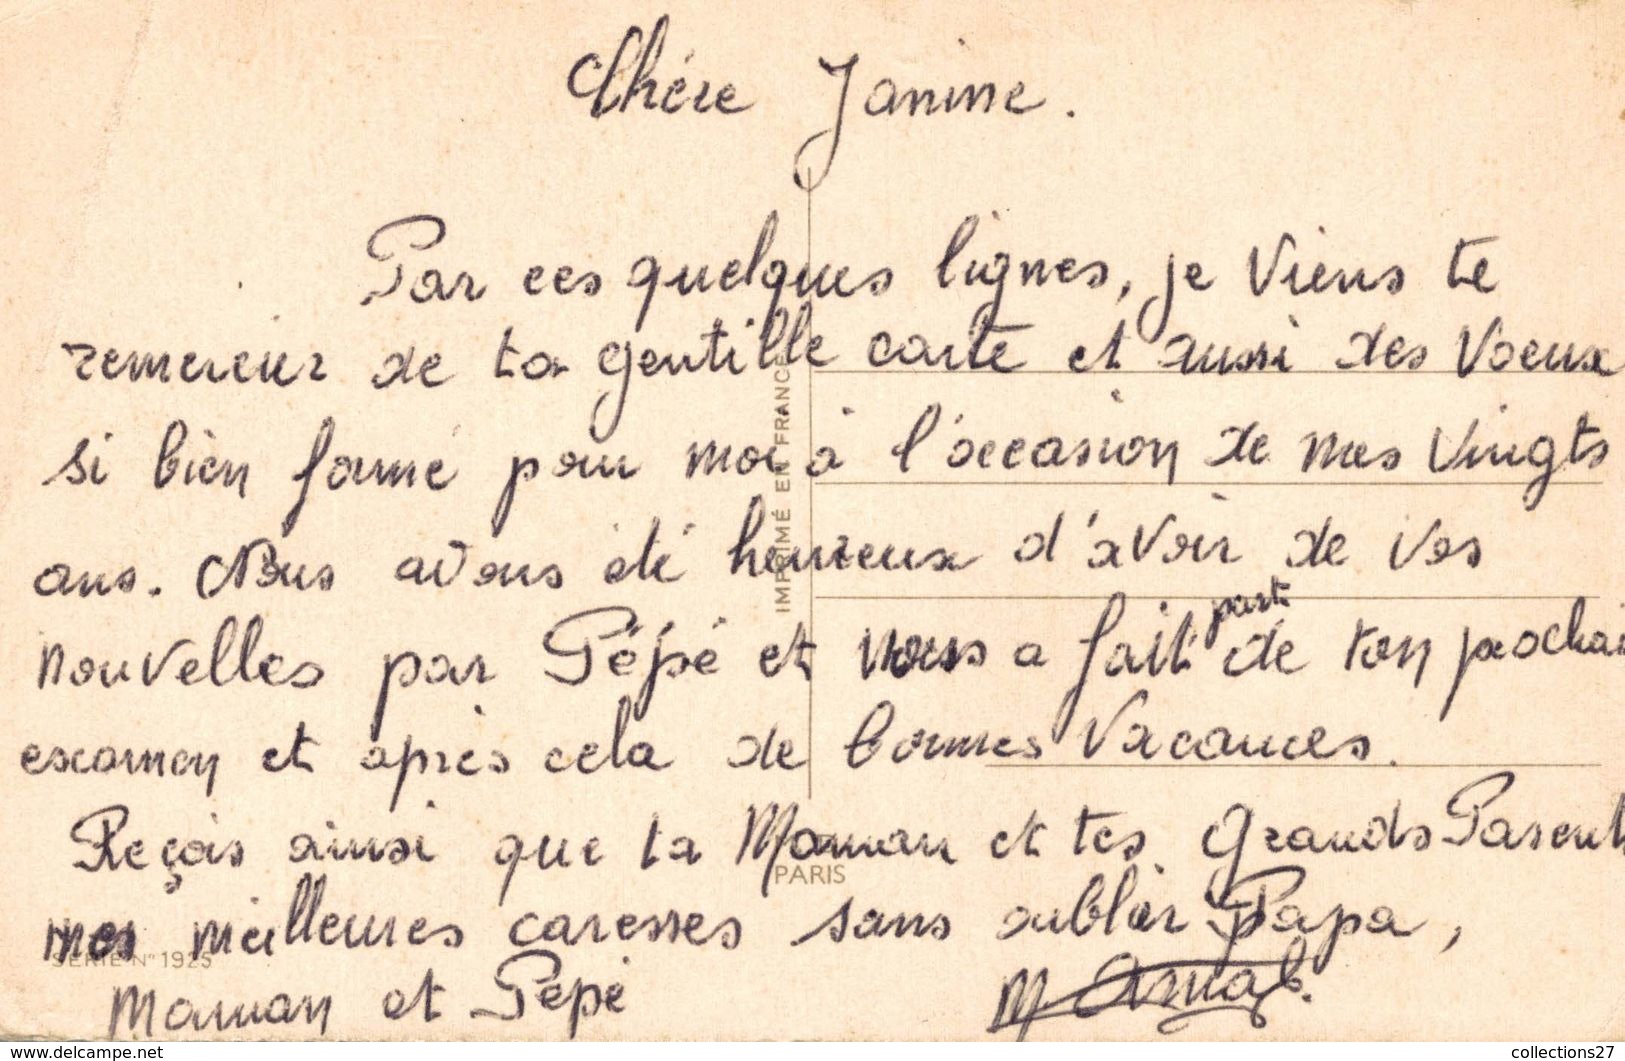 Chére Janine.
Par ces quelques lignes, je viens te
remercier de ta gentille carte et aussi des Voeux
si bien formé pour moi à l'occasion de mes Vingts
ans. Nous avons été heureux d'avoir de vos
nouvelles par Pépé et nous a fait part de ton prochai
examen et après cela de bonnes Vacances.
Reçois ainsi que ta Maman et tes Grands Parents
mes meilleures caresses sans oublier Papa,
Maman et Pépé
IMPRIMÉ EN FRANCE
PARIS
SÉRIE N° 1925
collections27
www.delcampe.net